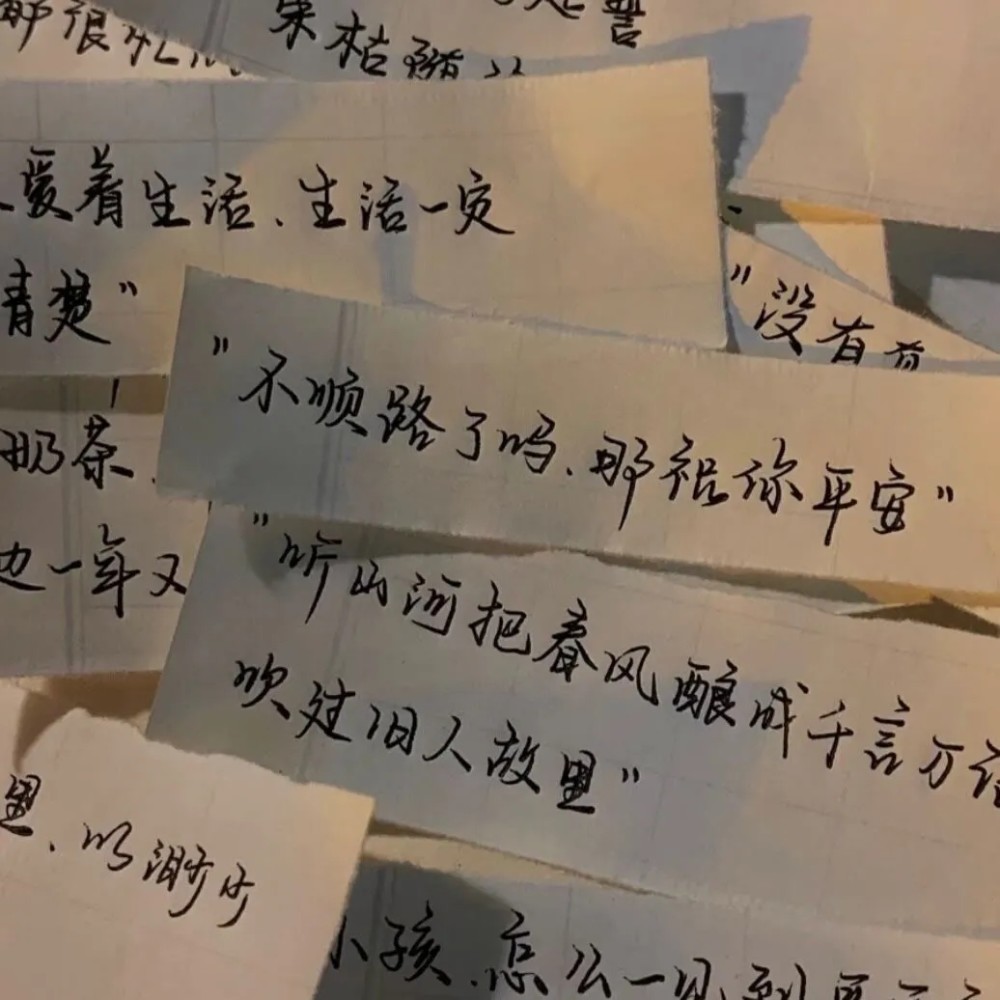 那很
果枯
爱着生活、生活一定
清楚"
"没有
"不顺路了吗、那祝你平安"
奶茶、
边一年又
"听山河把春风酿成千言万语
吹过旧人故里"
里、以渺
小孩、怎么一见到